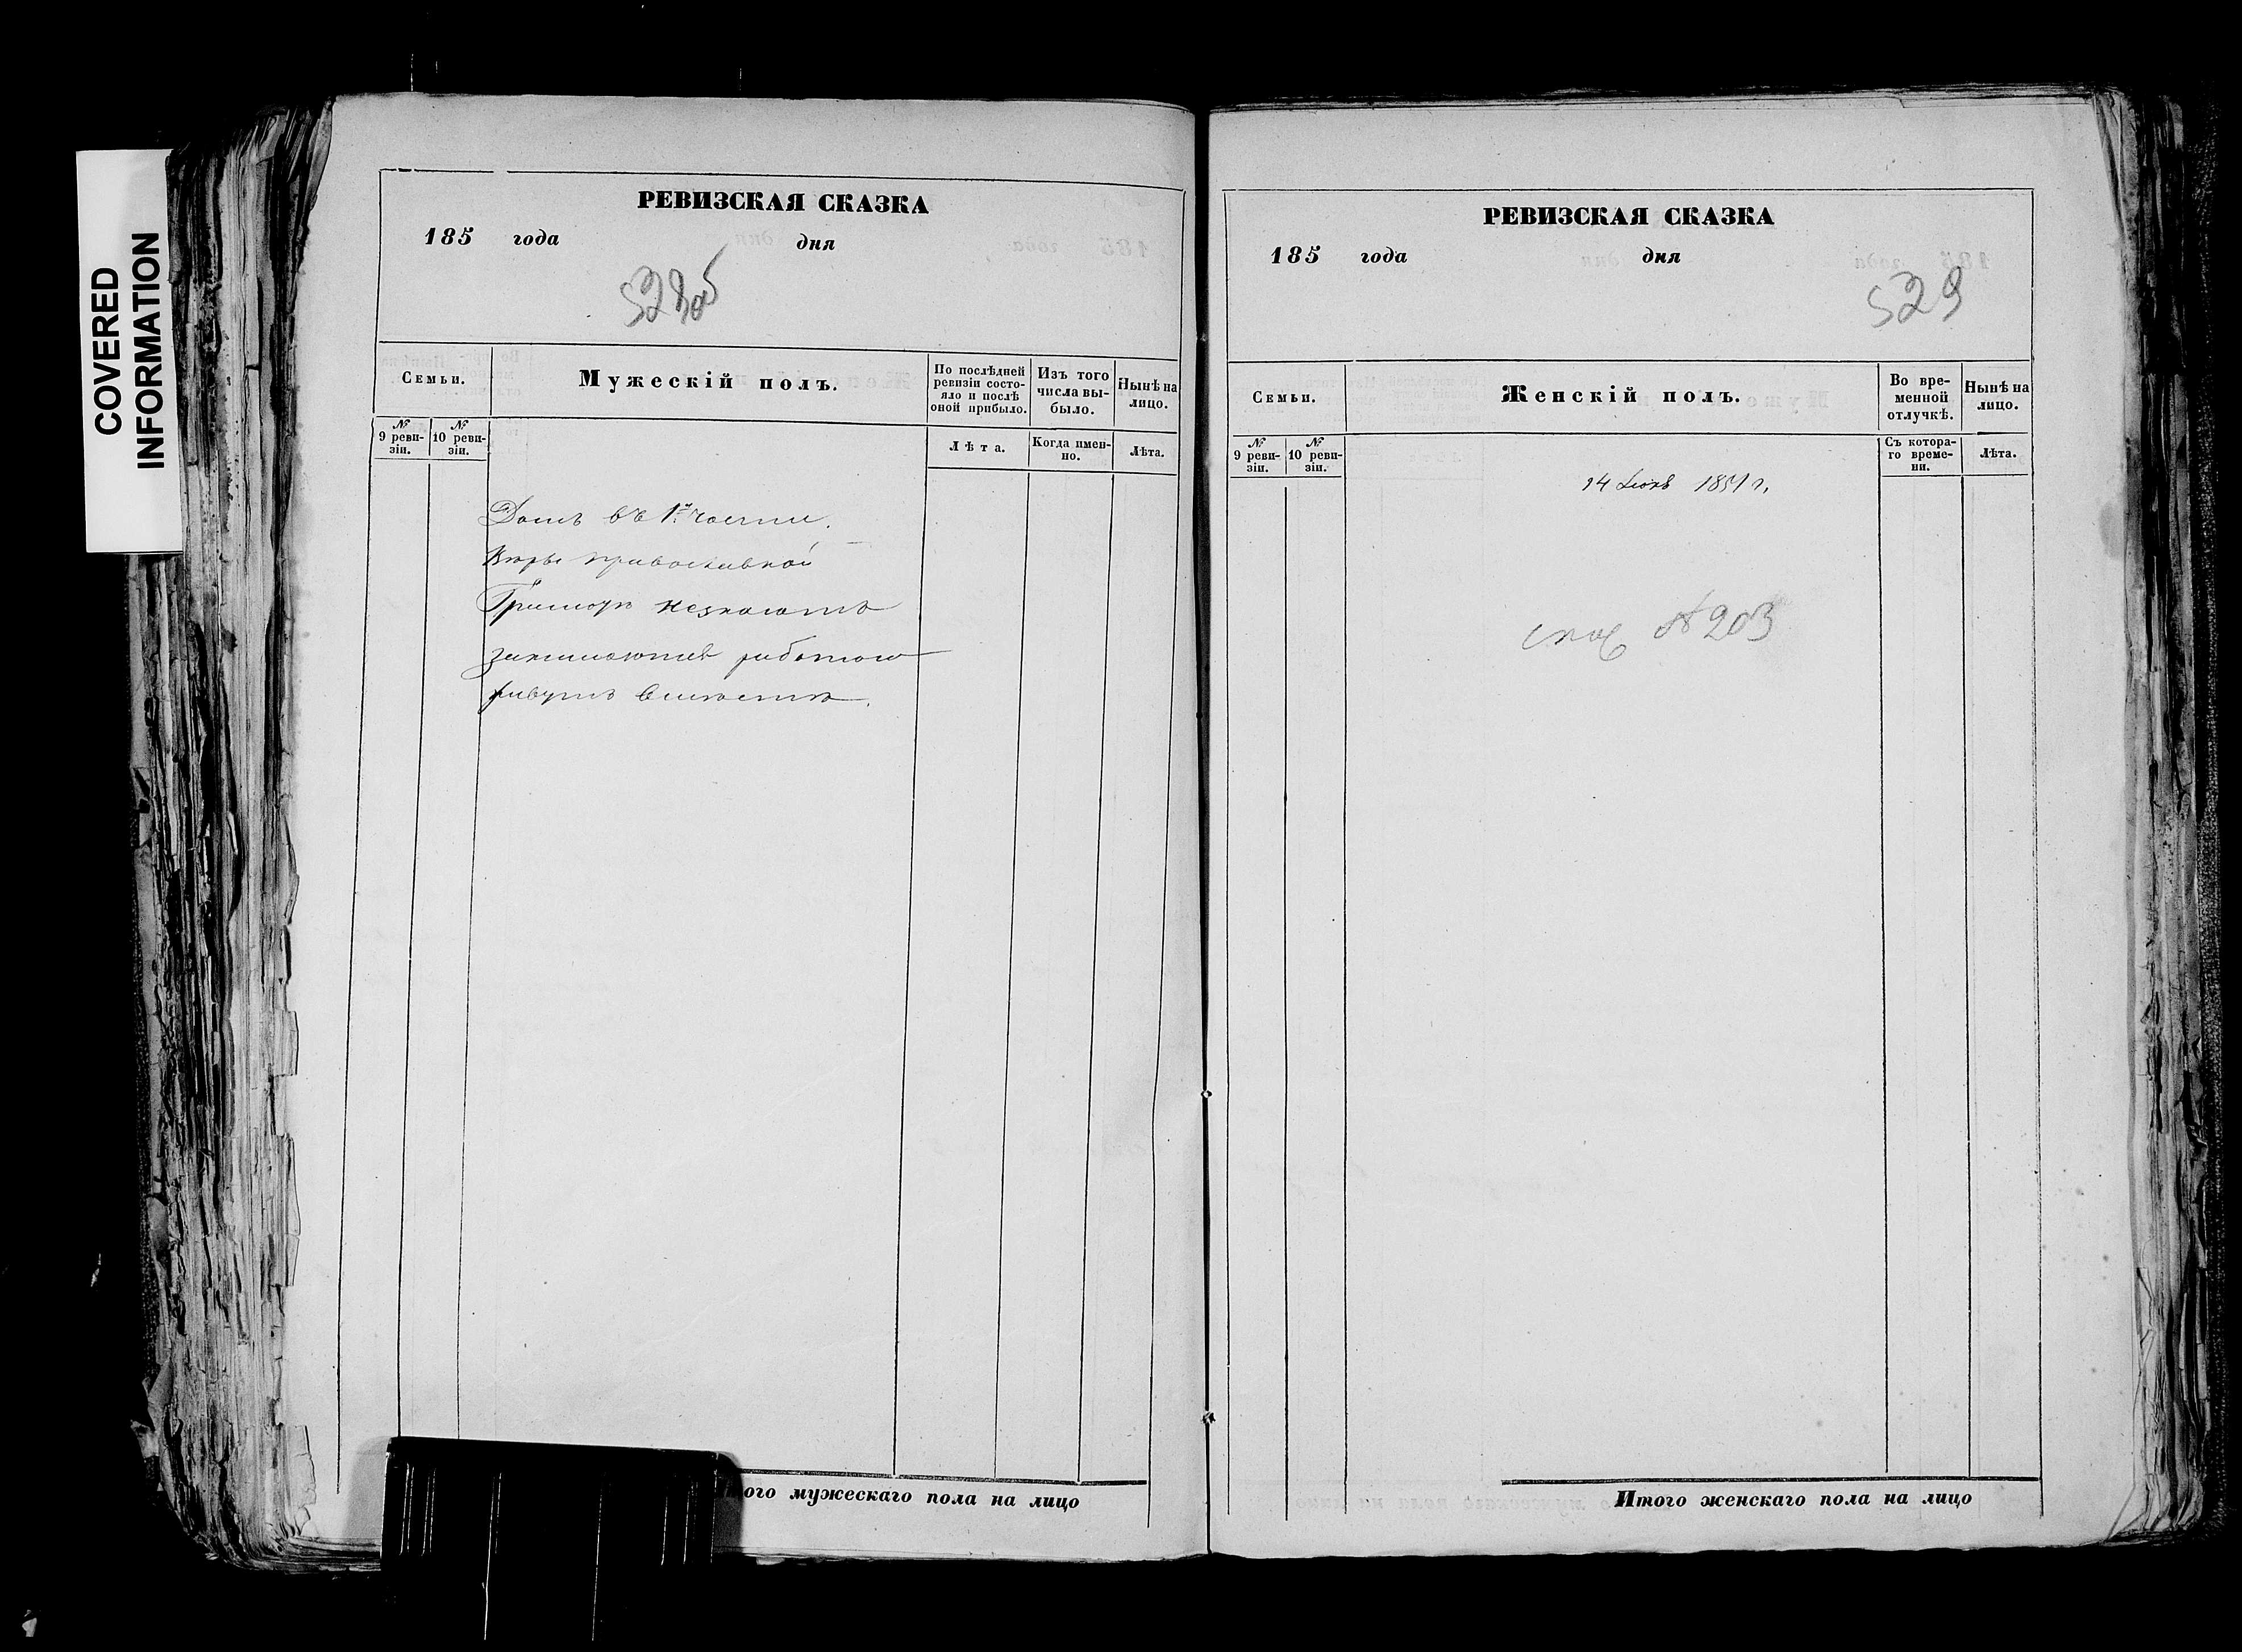 COVERED
INFORMATION
РЕВИЗСКАЯ СКАЗКА
185 года дня
528об
Семьи.
Мужескій полъ.
По послѣдней ревизіи состо-
яло и послѣ оной прибыло.
Изъ того числа вы-
было.
Нынѣ на лицо.
№ 9 реви-
зіи.
№ 10 реви-
зіи.
Лѣта.
Когда имен-
но.
Лѣта.
Домъ въ 1й части.
Вѣры православной
Грамотѣ незнаютъ
занимаются работою
живутъ вмѣстѣ.
ого мужескаго пола на лицо
РЕВИЗСКАЯ СКАЗКА
185 года дня
529
Семьи.
Женскій полъ.
Во вре-
менной
отлучкѣ.
Нынѣ на
лицо.
№ 9 реви-
зіи.
№ 10 реви-
зіи.
Съ котора-
го време-
ни.
Лѣта.
14 1851 г.
№ 203
Итого женскаго пола на лицо